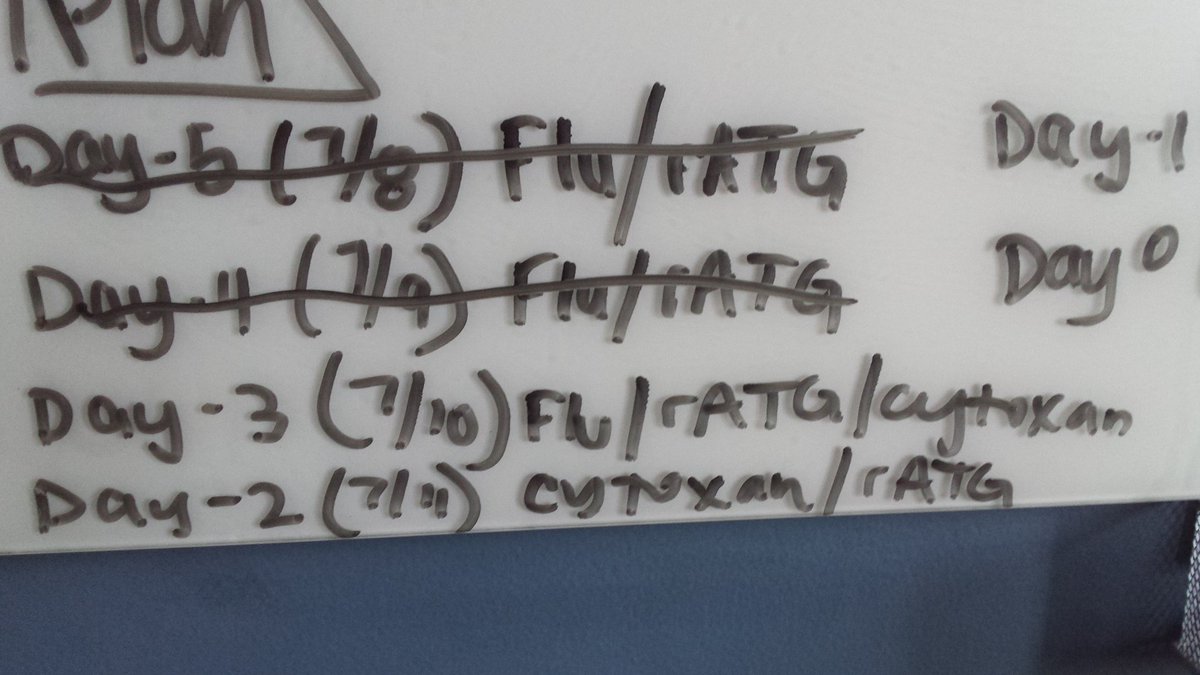 Plan
Day -5 (7/8) Flu/rATG
Day -4 (7/9) Flu/rATG
Day -3 (7/10) Flu/rATG/cytoxan
Day -2 (7/11) cytoxan/rATG
Day -1
Day 0